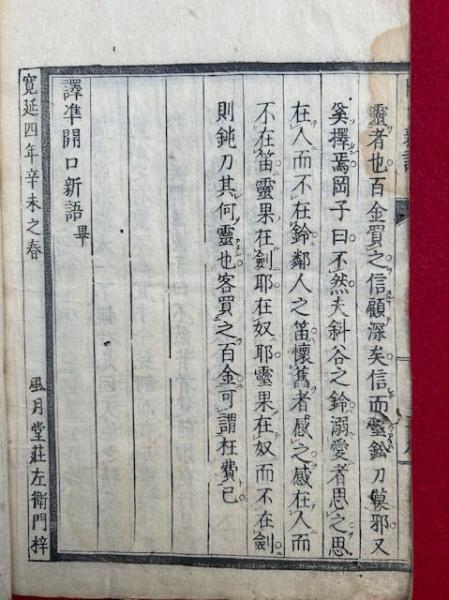 靈者也百金買之信顧深矣信而靈鈆刀鏌邪又
奚擇焉岡子曰不然夫斜谷之鈴溺愛者思之思
在人而不在鈴鄰人之笛懷舊者感之感在人而
不在笛靈果在劍耶在奴耶靈果在奴而不在劍
則鈍刀其何靈也客買之百金可謂枉費已
譯準開口新語畢
寛延四年辛未之春
風月堂莊左衛門梓